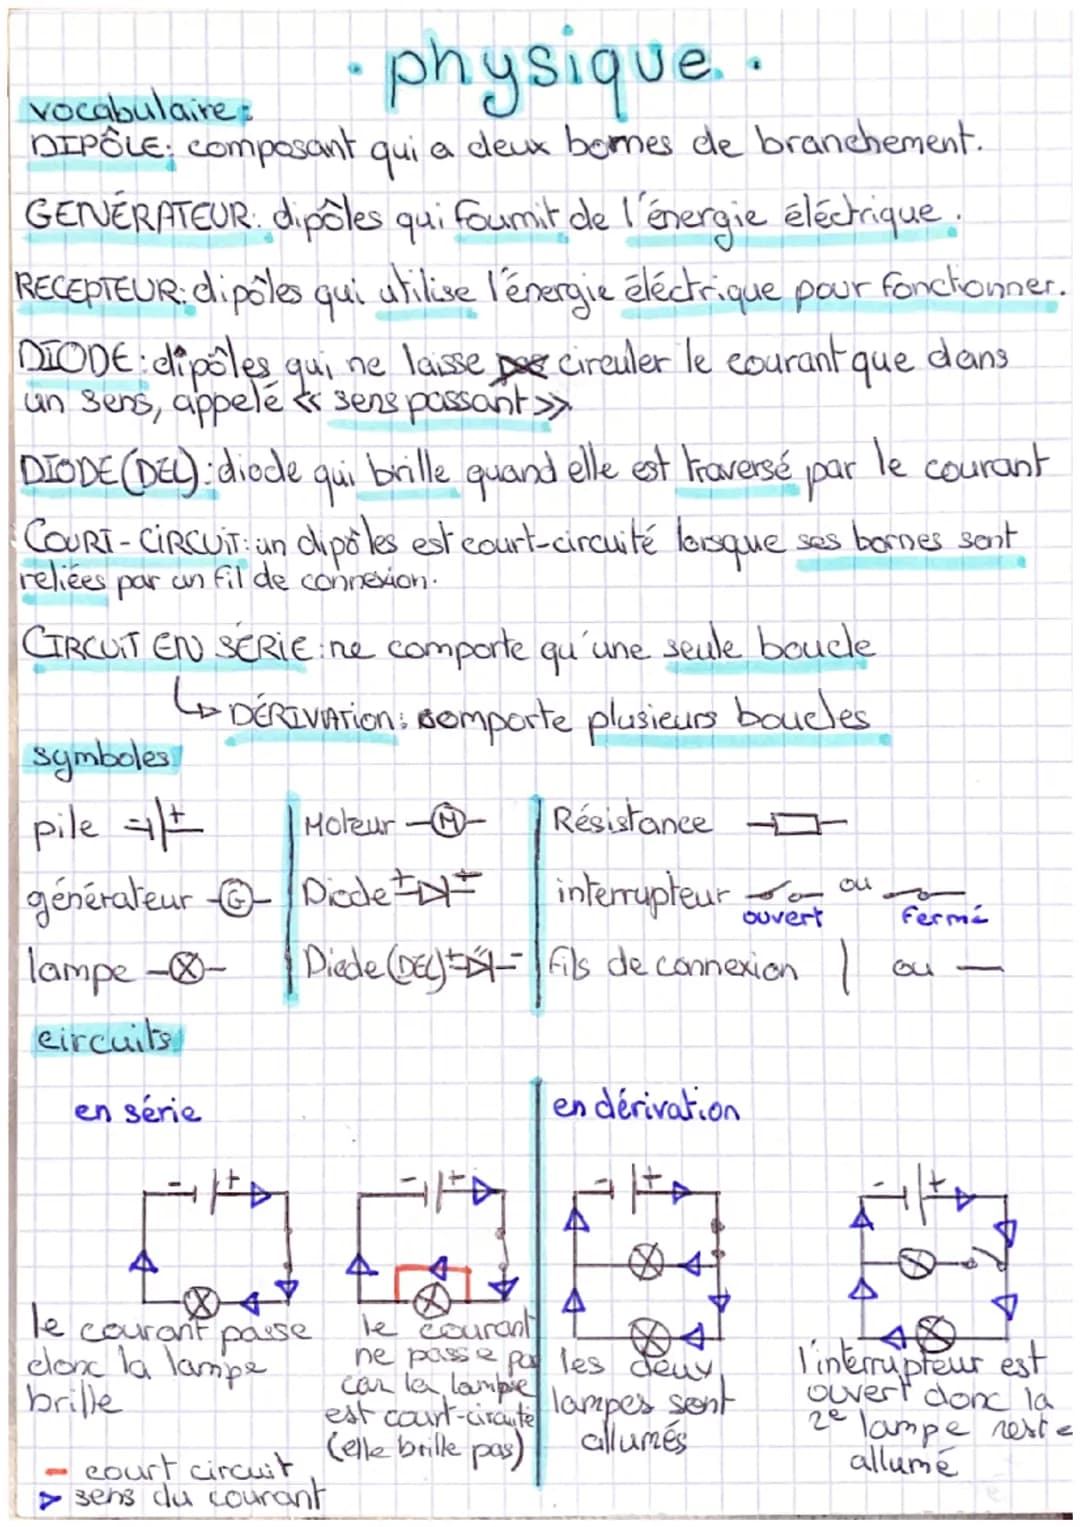 physique.
vocabulaire:
DIPÔLE: composant qui a deux bornes de branchement.
GENÉRATEUR: dipôles qui fournit de l'énergie éléctrique.
RECEPTEUR: dipôles qui utilise l'énergie éléctrique pour fonctionner.
DIODE: dipôles qui ne laisse circuler le courant que dans
un sens, appelé << sens passant >>
DIODE (DEL): diode qui brille quand elle est traversé par le courant
COURT-CIRCUIT: un dipôles est court-circuité lorsque ses bornes sont
reliées par un fil de connexion.
CIRCUIT EN SÉRIE: ne comporte qu'une seule boucle
↳ DÉRIVATION: comporte plusieurs boucles
symboles
pile - +
Moteur M
Résistance
générateur G
Diode + -
interrupteur ou
ouvert fermé
lampe
Diode (DEL) + -
fils de connexion | ou —
circuits
en série
en dérivation
- +
- +
- +
- +
le courant passe
donc la lampe
brille
le courant
ne passe pas
car la lampe
est court-circuité
(elle brille pas)
les deux
lampes sont
allumés
l'interrupteur est
ouvert donc la
2e lampe reste
allumé
- court circuit
▷ sens du courant